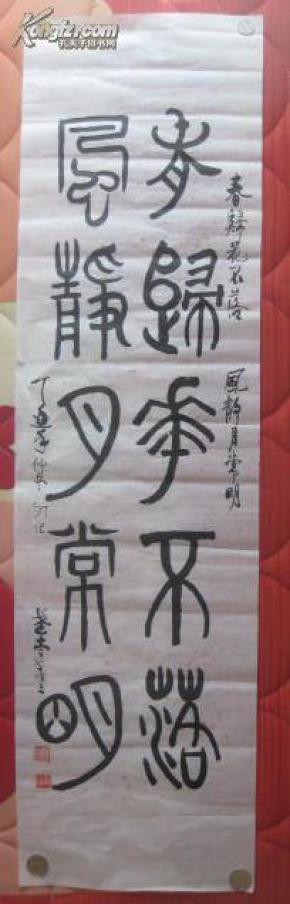 Kongfz.com
孔夫子旧书网
春歸花不落 風靜月常明
春歸華不落
風靜月常明
丁